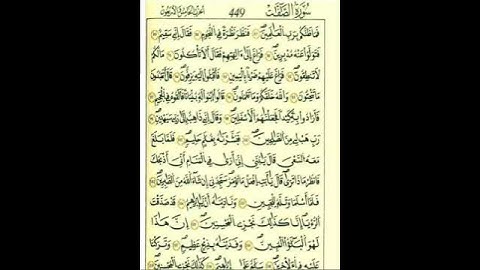 سُورَةُ الصَّافَّاتِ ٤٤٩
فَمَا ظَنُّكُمْ بِرَبِّ الْعَالَمِينَ فَنَظَرَ نَظْرَةً فِي النُّجُومِ فَقَالَ إِنِّي سَقِيمٌ
فَتَوَلَّوْا عَنْهُ مُدْبِرِينَ فَرَاغَ إِلَى آلِهَتِهِمْ فَقَالَ أَلَا تَأْكُلُونَ مَا لَكُمْ
لَا تَنْطِقُونَ فَرَاغَ عَلَيْهِمْ ضَرْبًا بِالْيَمِينِ فَأَقْبَلُوا إِلَيْهِ يَزِفُّونَ قَالَ أَتَعْبُدُونَ
مَا تَنْحِتُونَ وَاللَّهُ خَلَقَكُمْ وَمَا تَعْمَلُونَ قَالُوا ابْنُوا لَهُ بُنْيَانًا فَأَلْقُوهُ فِي الْجَحِيمِ
فَأَرَادُوا بِهِ كَيْدًا فَجَعَلْنَاهُمُ الْأَسْفَلِينَ وَقَالَ إِنِّي ذَاهِبٌ إِلَى رَبِّي سَيَهْدِينِ
رَبِّ هَبْ لِي مِنَ الصَّالِحِينَ فَبَشَّرْنَاهُ بِغُلَامٍ حَلِيمٍ فَلَمَّا بَلَغَ
مَعَهُ السَّعْيَ قَالَ يَا بُنَيَّ إِنِّي أَرَى فِي الْمَنَامِ أَنِّي أَذْبَحُكَ
فَانْظُرْ مَاذَا تَرَى قَالَ يَا أَبَتِ افْعَلْ مَا تُؤْمَرُ سَتَجِدُنِي إِنْ شَاءَ اللَّهُ مِنَ الصَّابِرِينَ
فَلَمَّا أَسْلَمَا وَتَلَّهُ لِلْجَبِينِ وَنَادَيْنَاهُ أَنْ يَا إِبْرَاهِيمُ قَدْ صَدَّقْتَ
الرُّؤْيَا إِنَّا كَذَلِكَ نَجْزِي الْمُحْسِنِينَ إِنَّ هَذَا
لَهُوَ الْبَلَاءُ الْمُبِينُ وَفَدَيْنَاهُ بِذِبْحٍ عَظِيمٍ وَتَرَكْنَا
عَلَيْهِ فِي الْآخِرِينَ سَلَامٌ عَلَى إِبْرَاهِيمَ كَذَلِكَ نَجْزِي الْمُحْسِنِينَ